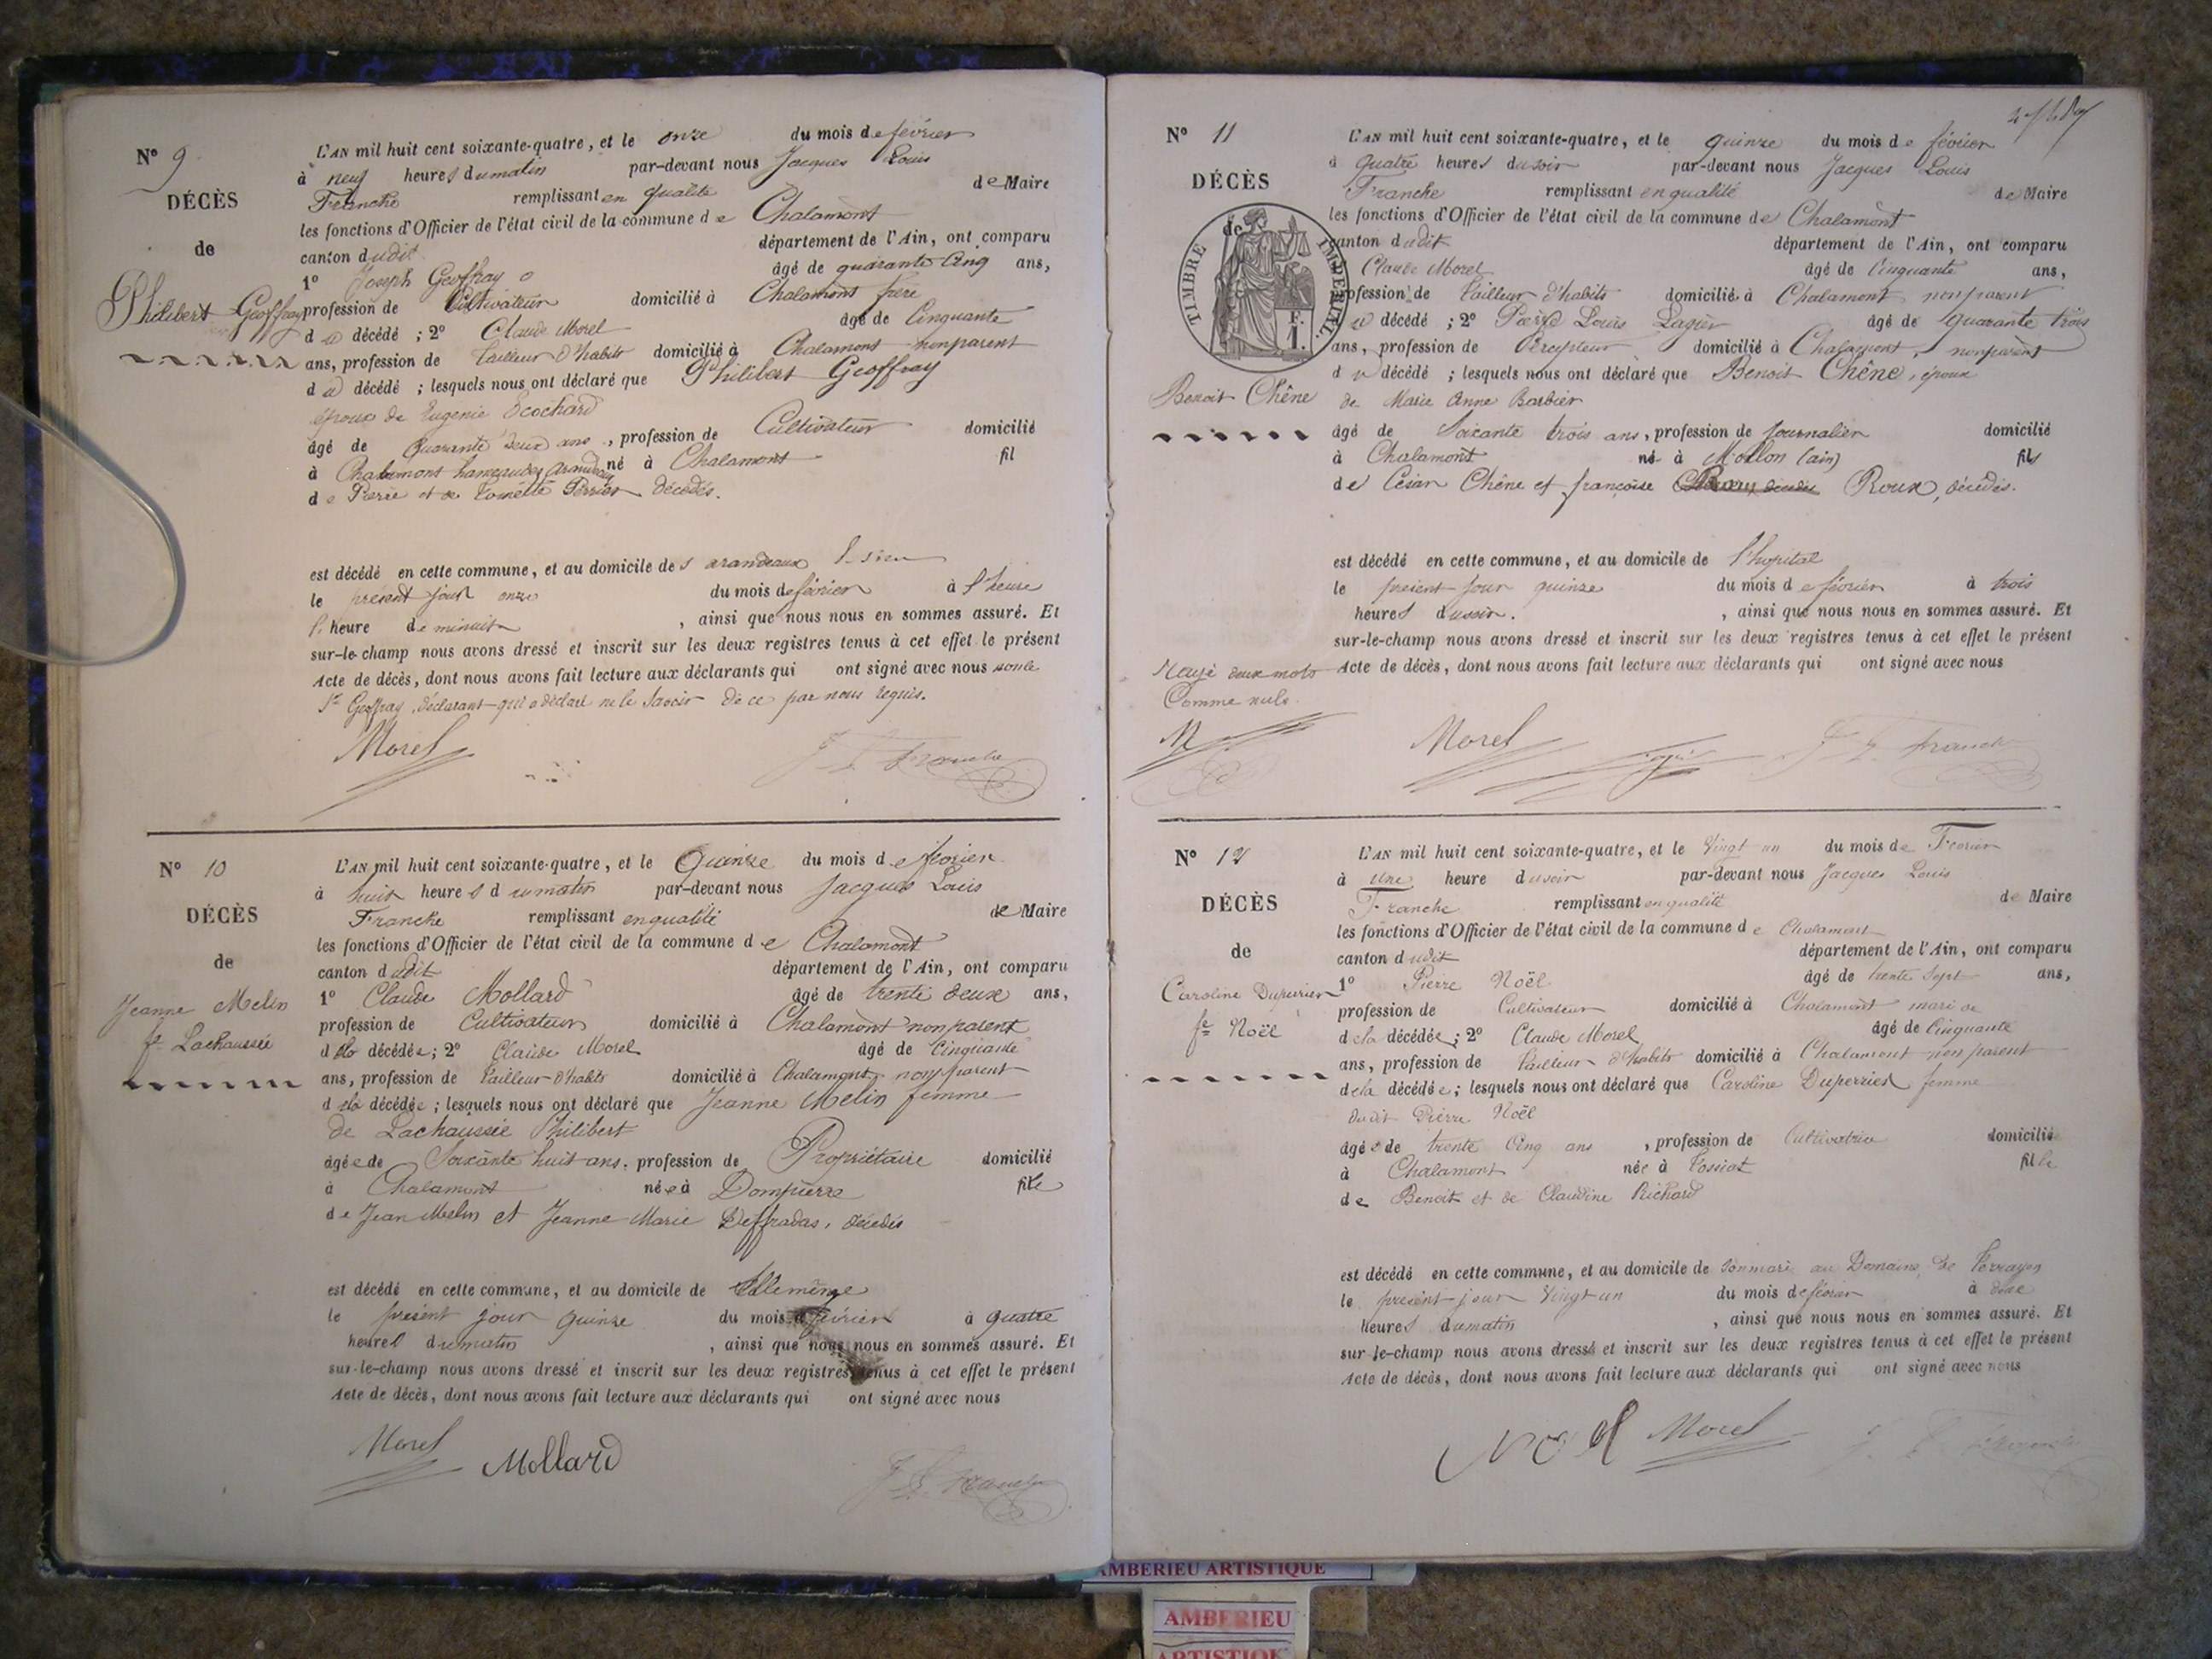 Nº 9
DÉCÈS
de
Philibert Geoffray
L'AN mil huit cent soixante-quatre, et le onze du mois de février
à neuf heures du matin par-devant nous Jacques Louis
Franche remplissant en qualité de Maire
les fonctions d'Officier de l'état civil de la commune de Chalamont
canton dudit département de l'Ain, ont comparu
1º Joseph Geoffray âgé de quarante Cinq ans,
profession de Cultivateur domicilié à Chalamont frère
du décédé ; 2º Claude Morel âgé de Cinquante
ans, profession de tailleur d'habits domicilié à Chalamont non parent
du décédé ; lesquels nous ont déclaré que Philibert Geoffray
époux de Eugenie Ecochard
âgé de Quarante deux ans, profession de Cultivateur domicilié
à Chalamont hameau des né à Chalamont fil
de Pierre et de Perrier décédés.
est décédé en cette commune, et au domicile de
le présent jour onze du mois de février à l'heure
heure de minuit, ainsi que nous nous en sommes assuré. Et
sur-le-champ nous avons dressé et inscrit sur les deux registres tenus à cet effet le présent
Acte de décès, dont nous avons fait lecture aux déclarants qui ont signé avec nous
Geoffray, déclarant qui a déclaré ne le Savoir de ce par nous requis.
Morel J L Franche
Nº 10
DÉCÈS
de
Jeanne Melin
fe Lachaussée
L'AN mil huit cent soixante-quatre, et le Quinze du mois de février
à huit heures du matin par-devant nous Jacques Louis
Franche remplissant en qualité de Maire
les fonctions d'Officier de l'état civil de la commune de Chalamont
canton dudit département de l'Ain, ont comparu
1º Claude Mollard âgé de trente deux ans,
profession de Cultivateur domicilié à Chalamont non parent
de la décédée ; 2º Claude Morel âgé de Cinquante
ans, profession de tailleur d'habits domicilié à Chalamont, non parent
de la décédée ; lesquels nous ont déclaré que Jeanne Melin femme
de Lachaussée Philibert
âgée de Soixante huit ans, profession de Propriétaire domicilié
à Chalamont née à Dompierre fille
de Jean Melin et Jeanne Marie Deffradas, décédés
est décédé en cette commune, et au domicile de Elle même
le présent jour quinze du mois de février à quatre
heures du matin, ainsi que nous nous en sommes assuré. Et
sur-le-champ nous avons dressé et inscrit sur les deux registres tenus à cet effet le présent
Acte de décès, dont nous avons fait lecture aux déclarants qui ont signé avec nous
Morel Mollard J L Franche
Nº 11
DÉCÈS
de
TIMBRE IMPÉRIAL
1 F.
Benoit Chêne
L'AN mil huit cent soixante-quatre, et le quinze du mois de février
à quatre heures du soir par-devant nous Jacques Louis
Franche remplissant en qualité de Maire
les fonctions d'Officier de l'état civil de la commune de Chalamont
canton dudit département de l'Ain, ont comparu
Claude Morel âgé de Cinquante ans,
profession de tailleur d'habits domicilié à Chalamont non parent
du décédé ; 2º Louis Lagier âgé de quarante trois
ans, profession de Percepteur domicilié à Chalamont, non parent
du décédé ; lesquels nous ont déclaré que Benoit Chêne, époux
de Marie Anne Barbier
âgé de Soixante trois ans, profession de Journalier domicilié
à Chalamont né à Mollon (ain) fils
de César Chêne et françoise Roux, décédés.
est décédé en cette commune, et au domicile de l'hopital
le présent jour quinze du mois de février à trois
heures du soir, ainsi que nous nous en sommes assuré. Et
sur-le-champ nous avons dressé et inscrit sur les deux registres tenus à cet effet le présent
Acte de décès, dont nous avons fait lecture aux déclarants qui ont signé avec nous
Rayé deux mots
Comme nuls.
M Morel J L Franche
Nº 12
DÉCÈS
de
Caroline Duperrier
fe Noël
L'AN mil huit cent soixante-quatre, et le Vingt un du mois de Fevrier
à une heure du soir par-devant nous Jacques Louis
Franche remplissant en qualité de Maire
les fonctions d'Officier de l'état civil de la commune de Chalamont
canton dudit département de l'Ain, ont comparu
1º Pierre Noël âgé de trente Sept ans,
profession de Cultivateur domicilié à Chalamont mari de
de la décédée ; 2º Claude Morel âgé de Cinquante
ans, profession de tailleur d'habits domicilié à Chalamont non parent
de la décédée ; lesquels nous ont déclaré que Caroline Duperrier femme
dudit Pierre Noël
âgée de trente Cinq ans, profession de Cultivatrice domicilié
à Chalamont née à Tossiat fille
de Benoit et de Claudine Richard
est décédé en cette commune, et au domicile de son mari au Domaine de
le présent jour Vingt un du mois de février à
heures du matin, ainsi que nous nous en sommes assuré. Et
sur-le-champ nous avons dressé et inscrit sur les deux registres tenus à cet effet le présent
Acte de décès, dont nous avons fait lecture aux déclarants qui ont signé avec nous
Noel Morel J L Franche
AMBERIEU ARTISTIQUE
AMBERIEU
ARTISTIQUE